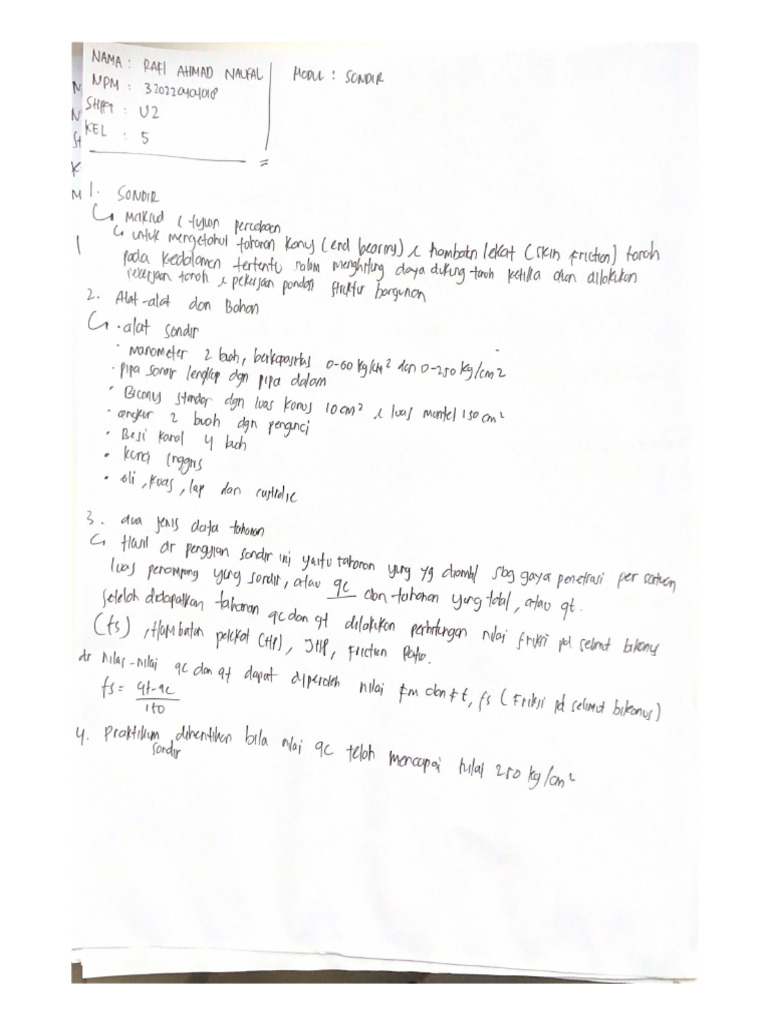 NAMA : RAFI AHMAD NAUFAL
NPM : 3202220401018
SHIFT : U2
KEL : 5
MODUL : SONDIR
1. SONDIR
Maksud & tujuan percobaan
untuk mengetahui tahanan konus (end bearing) & hambatn lekat (skin friction) tanah
pada kedalaman tertentu dalam menghitung daya dukung tanah ketika akan dilakukan
pekerjaan tanah & pekerjaan pondasi struktur bangunan
2. Alat-alat dan Bahan
·alat sondir
· manometer 2 buah, berkapasitas 0-60 kg/cm² dan 0-250 kg/cm2
· pipa sondir lengkap dgn pipa dalam
· Biconus standar dgn luas konus 10 cm² & luas mantel 150 cm²
· angkur 2 buah dgn pengunci
· Besi kanal 4 buah
· kunci Inggris
· oli, kuas, lap dan
3. dua jenis data tahanan
Hasil dr pengujian sondir ini yaitu tahanan yang yg diambil sbg gaya penetrasi per satuan
luas penampang yang sondir, atau qc dan tahanan yang total, atau qt.
setelah didapatkan tahanan qc dan qt dilakukan perhitungan nilai friksi pd selimut bikonus
(fs), Hambatan pelekat (HP), JHP, Friction Ratio.
dr Nilai-nilai qc dan qt dapat diperoleh nilai fm dan ft, fs (Friksi pd selimut bikonus)
fs = qt-qc
150
4. Praktikum dihentikan bila nilai qc telah mencapai nilai 250 kg/cm²
sondir